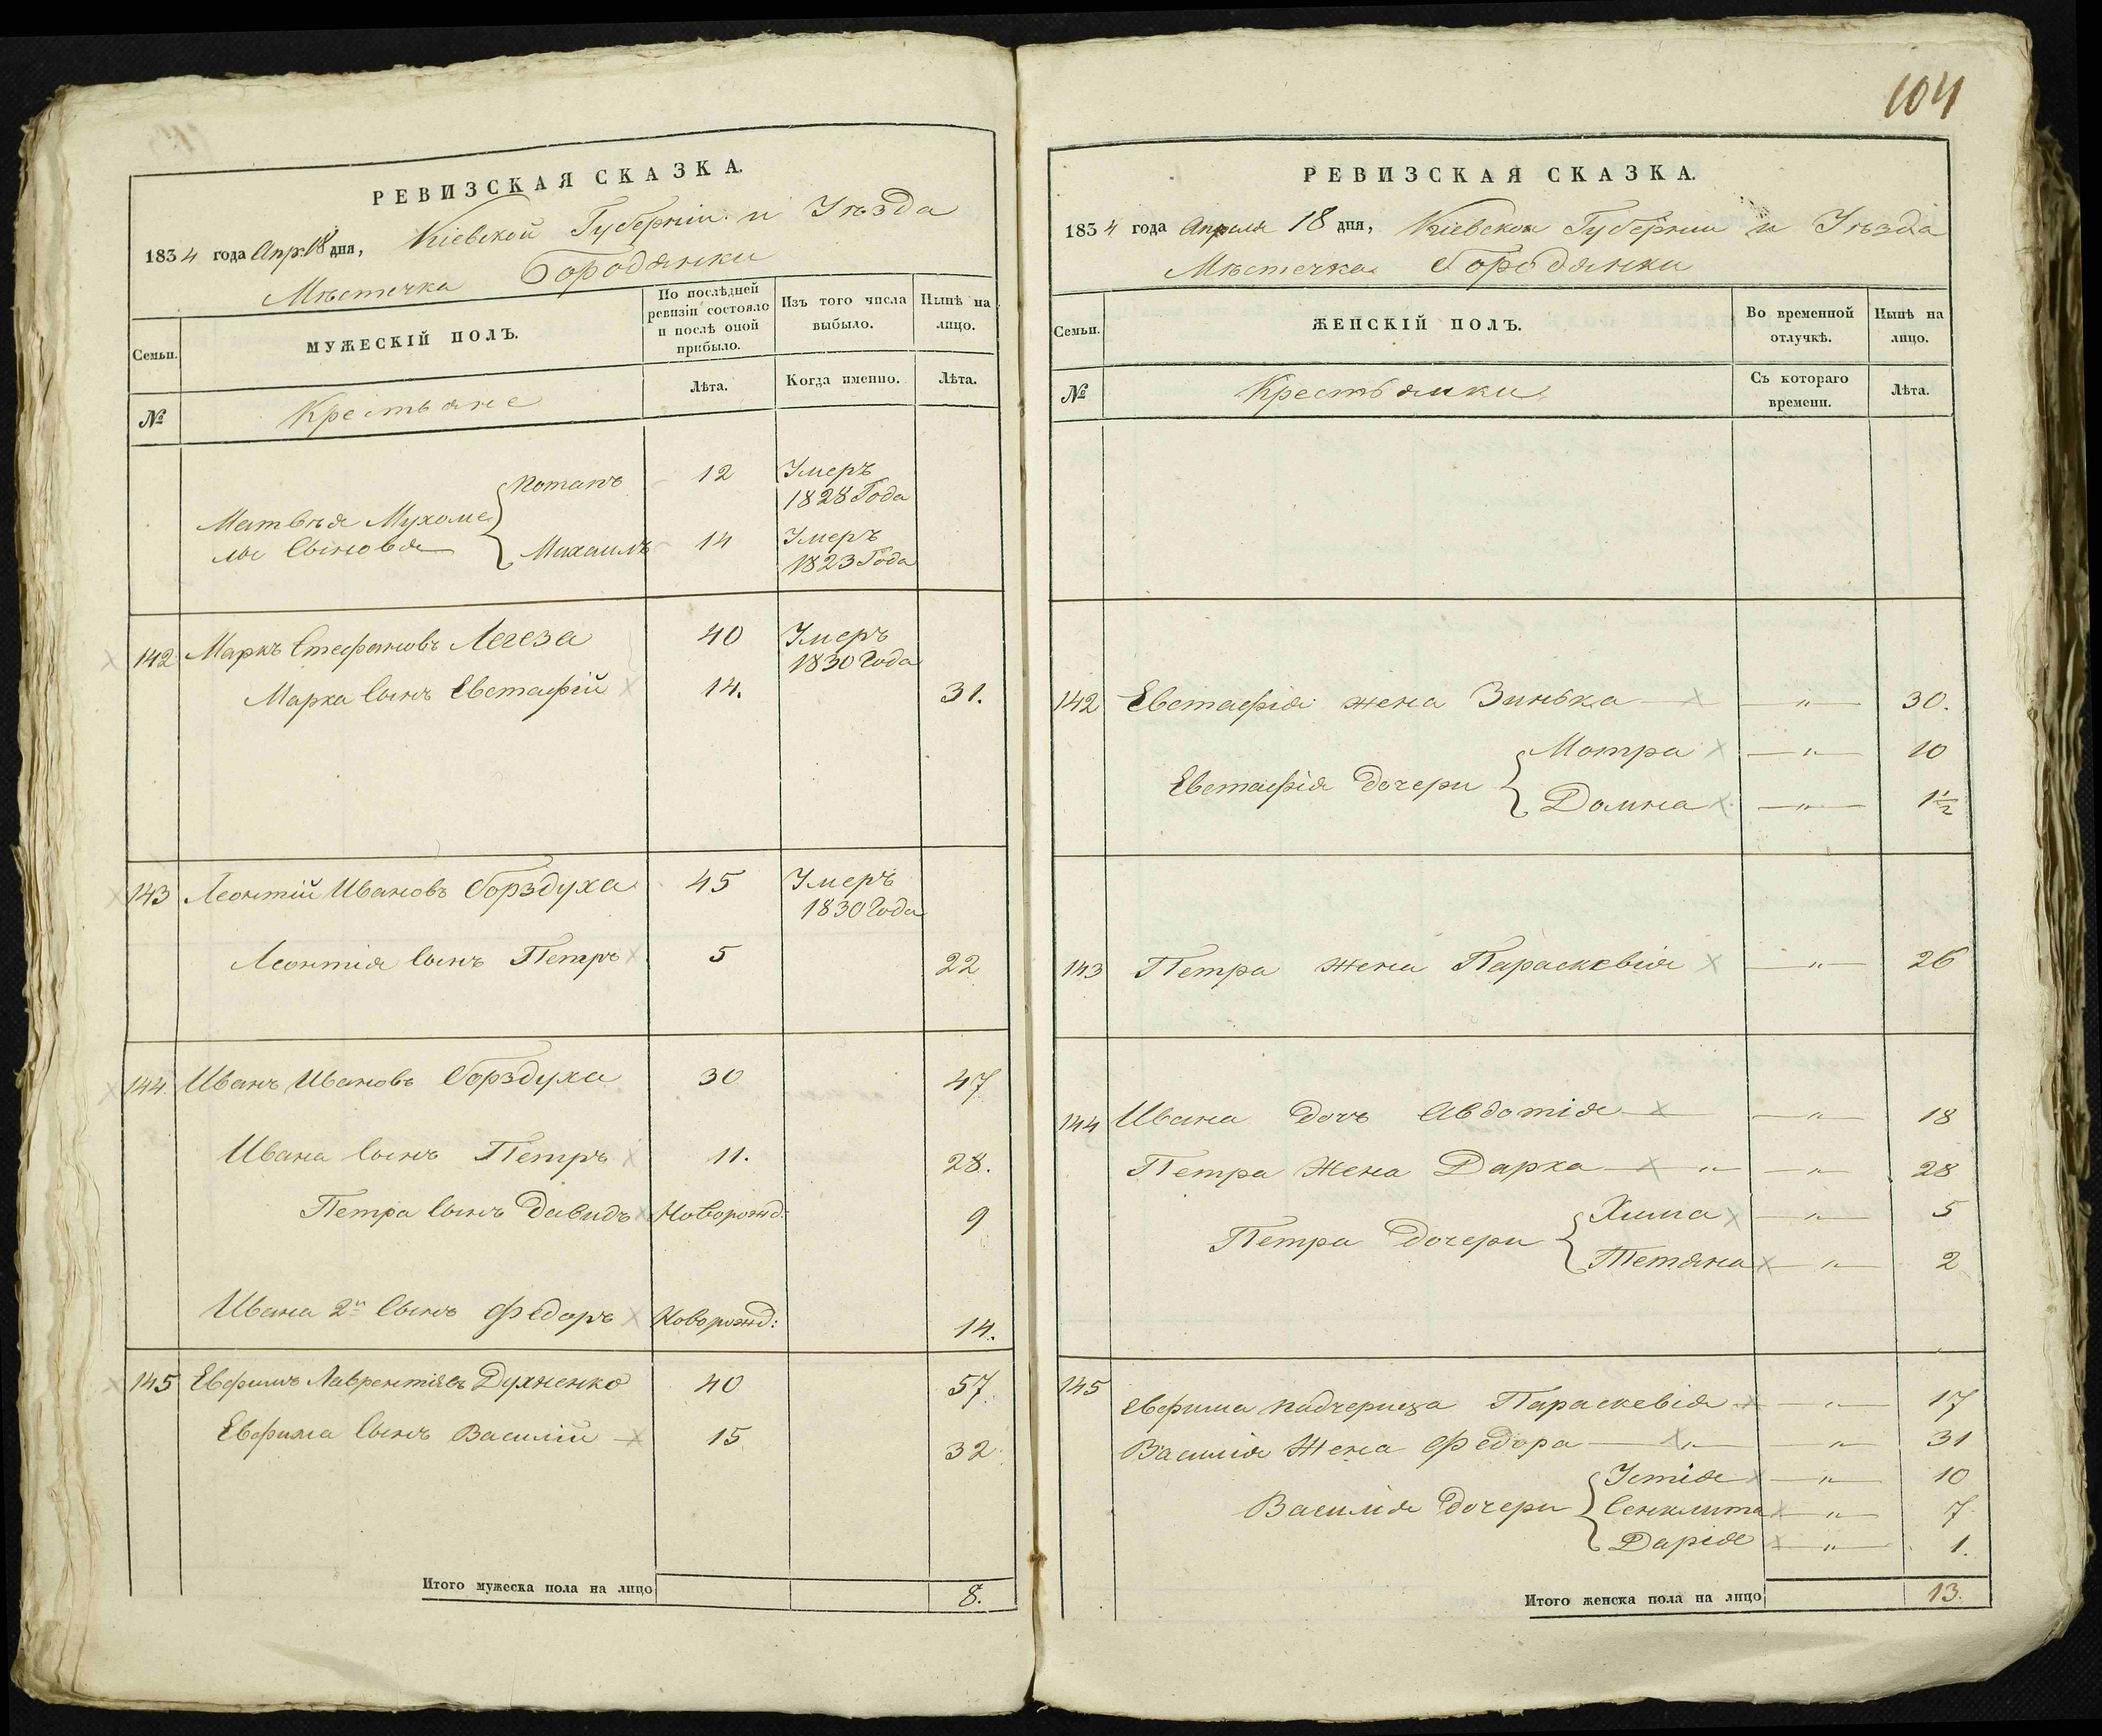 РЕВИЗСКАЯ СКАЗКА.
1834 года Апр: 18 дня, Кіевской Губерніи и Уѣзда
Мѣстечка Бородянки
Семьи. МУЖЕСКІЙ ПОЛЪ. По послѣдней ревизіи состояло и послѣ оной прибыло. Изъ того числа выбыло. Нынѣ на лицо.
№ Крестьяне Лѣта. Когда именно. Лѣта.
Потапъ 12 Умеръ
1828 Года
Матвѣя Мухоме
лы Сыновья Михаилъ 14 Умеръ
1823 Года
142 Маркъ Стефановъ Легеза 40 Умеръ
1830 Года
Марка Сынъ Евстафій 14. 31.
143 Леонтій Ивановъ Борздуха 45 Умеръ
1830 Года
Леонтія Сынъ Петръ 5 22
144 Иванъ Ивановъ Борздуха 30 47
Ивана Сынъ Петръ 11. 28.
Петра Сынъ Давидъ Новорожд: 9
Ивана 2й Сынъ Федоръ Новорожд: 14.
145 Евфимъ Лаврентіевъ Духненко 40 57.
Евфима Сынъ Василій 15 32.
Итого мужеска пола на лицо 8.
104
РЕВИЗСКАЯ СКАЗКА.
1834 года Апреля 18 дня, Кіевской Губерніи и Уѣзда
Мѣстечка Бородянки
Семьи. ЖЕНСКІЙ ПОЛЪ. Во временной отлучкѣ. Нынѣ на лицо.
№ Крестьянки Съ котораго времени. Лѣта.
142 Евстафія жена Зинька — " — 30.
Мотра — " — 10
Евстафія дочери
Домна — " — 1½
143 Петра жена Параскевія — " — 26
144 Ивана дочь Авдотія — " — 18
Петра Жена Дарка — " — " — 28
Хима — " — 5
Петра дочери
Тетяна — " — 2
145
Евфима падчерица Параскевія — " — 17
Василія Жена Федора — " — " — 31
Устія — " — 10
Василія дочери Сенклита — " — 7
Дарія — " — 1.
Итого женска пола на лицо 13.